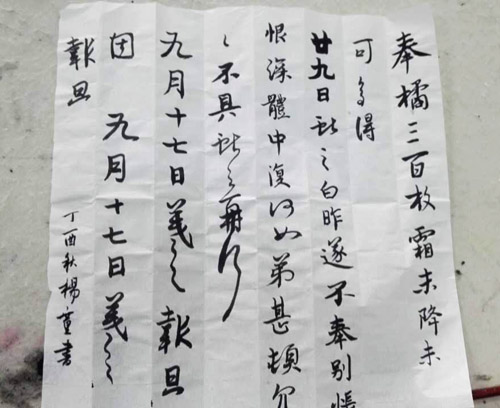 奉橘三百枚霜未降未
可多得
廿九日獻之白昨遂不奉別悵
恨深體中復何如弟甚頓匆
匆不具獻之再拜
九月十七日羲之報且
因 九月十七日羲之
報且
丁酉秋楊

書